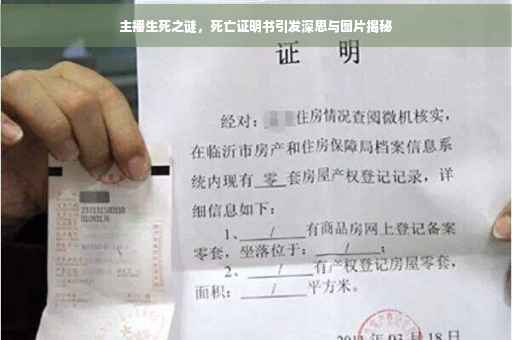 主播生死之谜，死亡证明书引发深思与图片揭秘
证 明
经对：住房情况查阅微机核实，
在临沂市房产和住房保障局档案信息系
统内现有 零 套房屋产权登记记录，详
细信息如下：
1、 / 有商品房网上登记备案
零套，坐落位于： / ；
2、 / 有产权登记房屋零套，
面积： / 平方米。
月18日